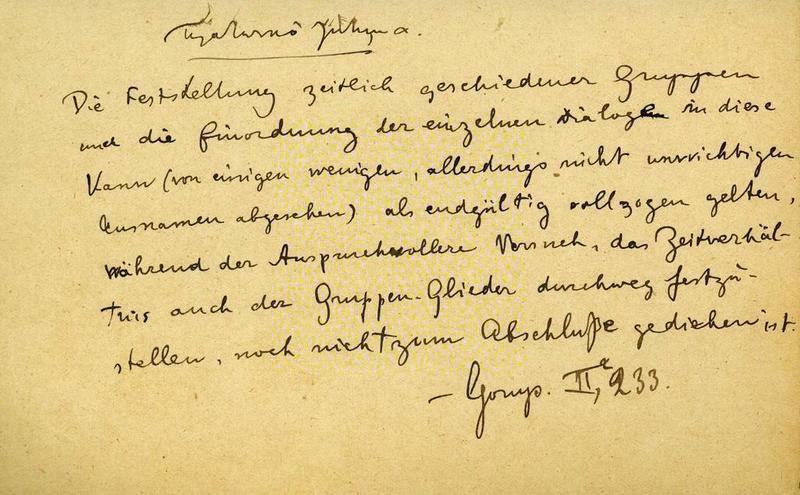 Die Feststellung zeitlich geschiedener Gruppen
und die Einordnung der einzelnen Dialogen in diese
kann (von einigen wenigen, allerdings nicht unwichtigen
Ausnamen abgesehen) als endgültig vollzogen gelten,
während der Anspruchsvollere Versuch, das Zeitverhäl-
tnis auch der Gruppen-Glieder durchweg festzu-
stellen, noch nicht zum Abschluße gediehen ist.
— Gomp. II, 233.